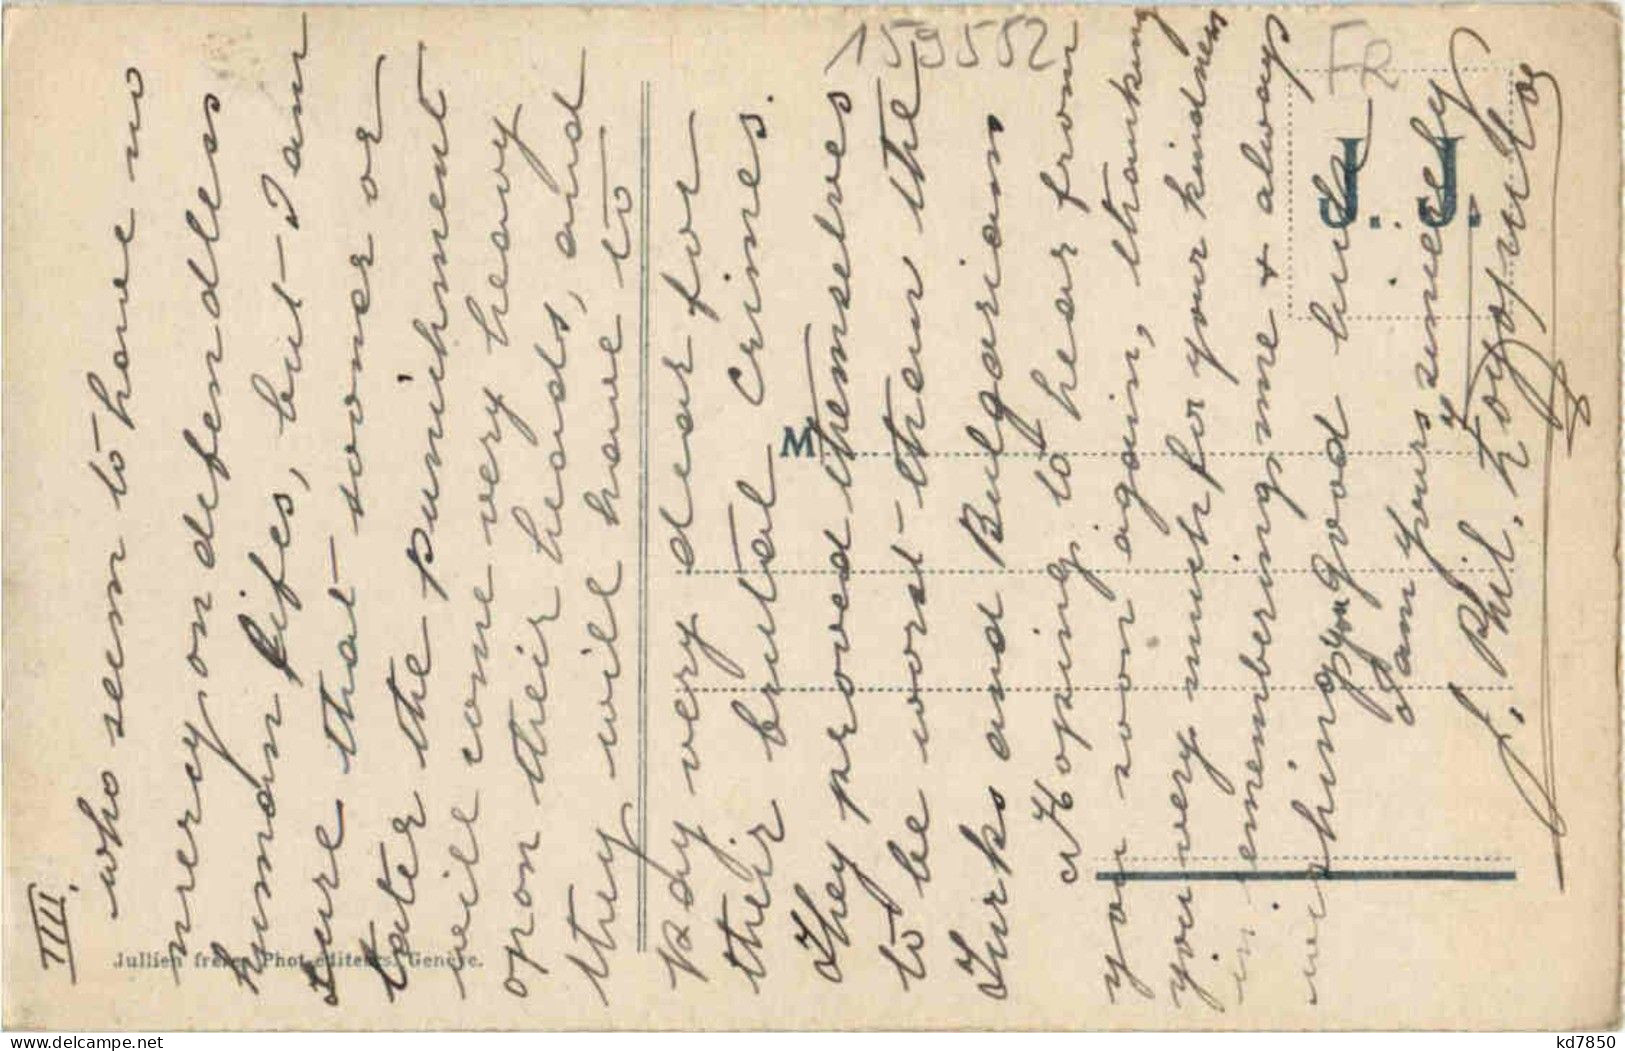 III.
who seem to have no
mercy on defendless
human lifes, but I am
sure that sooner or
later the punichment
will come very heavy
opon their heads, and
they will have to
pay very dear for
their brutal crimes.
They proved themselves
to be worst then the
Turks and Bulgarians
Hoping to hear from
you soon again, thanking
you very much for your kindness
in remembering me & always
wishing you good luck
I am yours sincerely
J. Phil.
159552
FR
J. J.
M
Jullien frères Phot-éditeurs, Genève.
kd7850